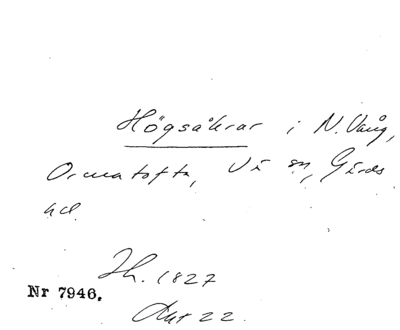 Högsåkrar i N. Vång,
Ormatofta, Vä sn, Gärds
hd.
Th. 1827
Nr 7946.
Akt 22.